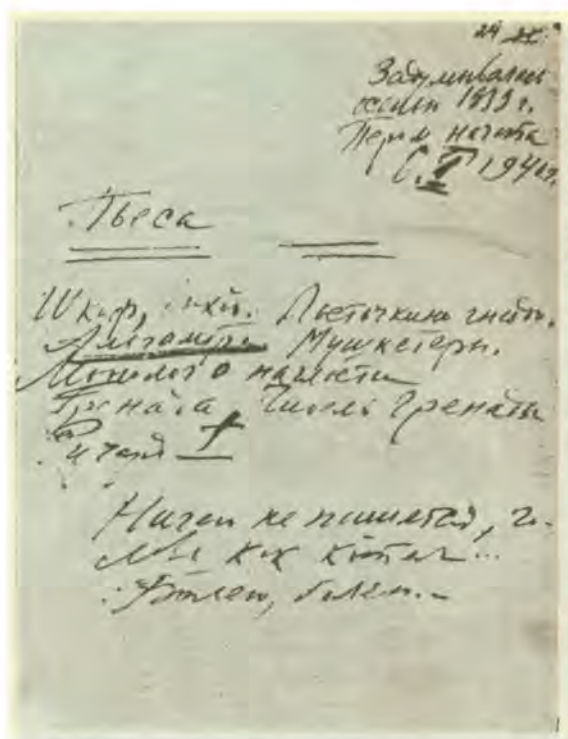 Задумывалась
осенью 1939 г.
Пером начата
6. I 1940 г.
Пьеса
Шкаф, выход. Ласточкино гнездо.
Альгамбра. Мушкетеры.
Монолог о наглости
Гренада Гибель Гренады
Ричард I
Ничего не пишется, го-
лова как котел...
Болею, болею...